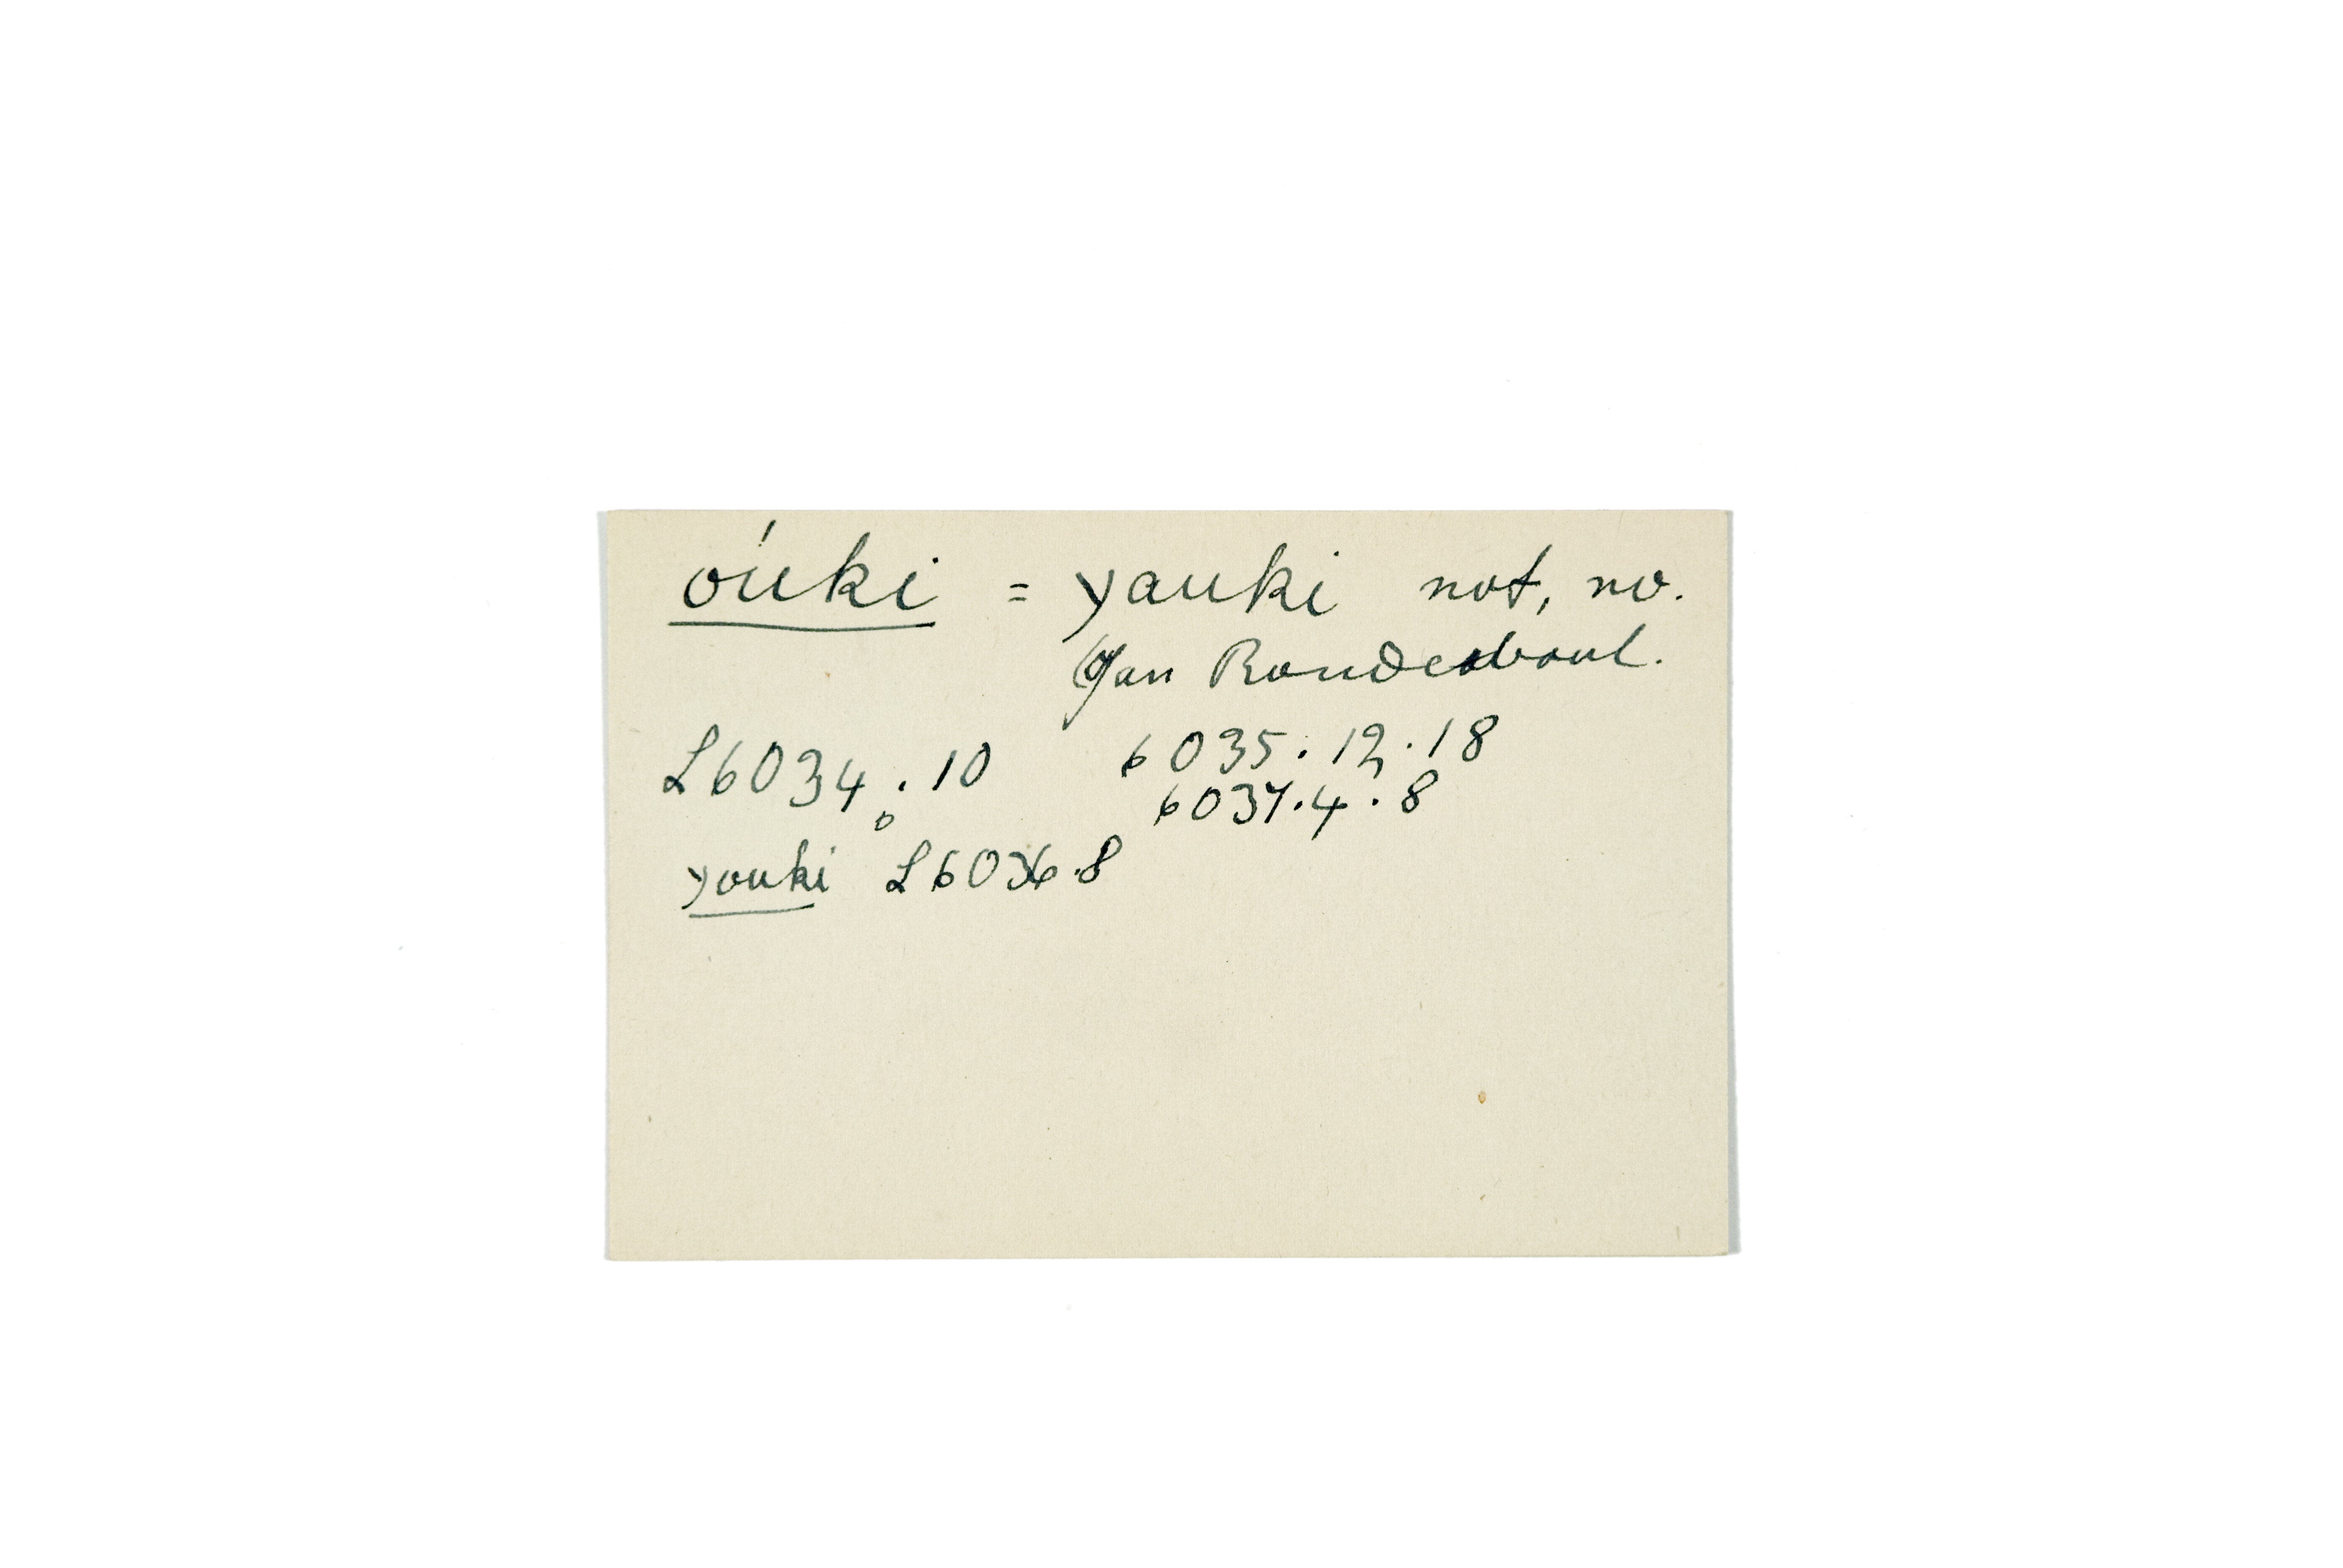 óuki = yauki not, no.
(Jan Rondebout.
L6034.10 6035.12.18
6037.4.8
youki L6036.8